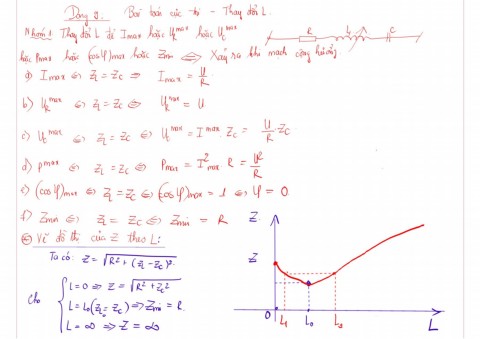 Dạng 9: Bài toán cực trị - Thay đổi L
Nhóm 1 Thay đổi L để Imax hoặc U_R^max hoặc U_C^max
R L C
hoặc Pmax hoặc (cosφ)max hoặc Zmin ⇔ Xảy ra khi mạch cộng hưởng
a) Imax ⇔ Z_L = Z_C ⇒ Imax = U/R
b) U_R^max ⇔ Z_L = Z_C ⇔ U_R^max = U
c) U_C^max ⇔ Z_L = Z_C ⇔ U_C^max = I^max Z_C = U/R Z_C
d) P^max ⇔ Z_L = Z_C ⇔ Pmax = I²max R = U²/R
e) (cosφ)max ⇔ Z_L = Z_C ⇔ (cosφ)max = 1 ⇔ φ = 0
f) Zmin ⇔ Z_L = Z_C ⇔ Zmin = R
Vẽ đồ thị của Z theo L:
Ta có: Z = √(R² + (Z_L - Z_C)²)
Cho
L = 0 ⇒ Z = √(R² + Z_C²)
L = L₀ (Z_L₀ = Z_C) ⇒ Zmin = R
L = ∞ ⇒ Z = ∞
Z
Z
0 L₁ L₀ L₂ L